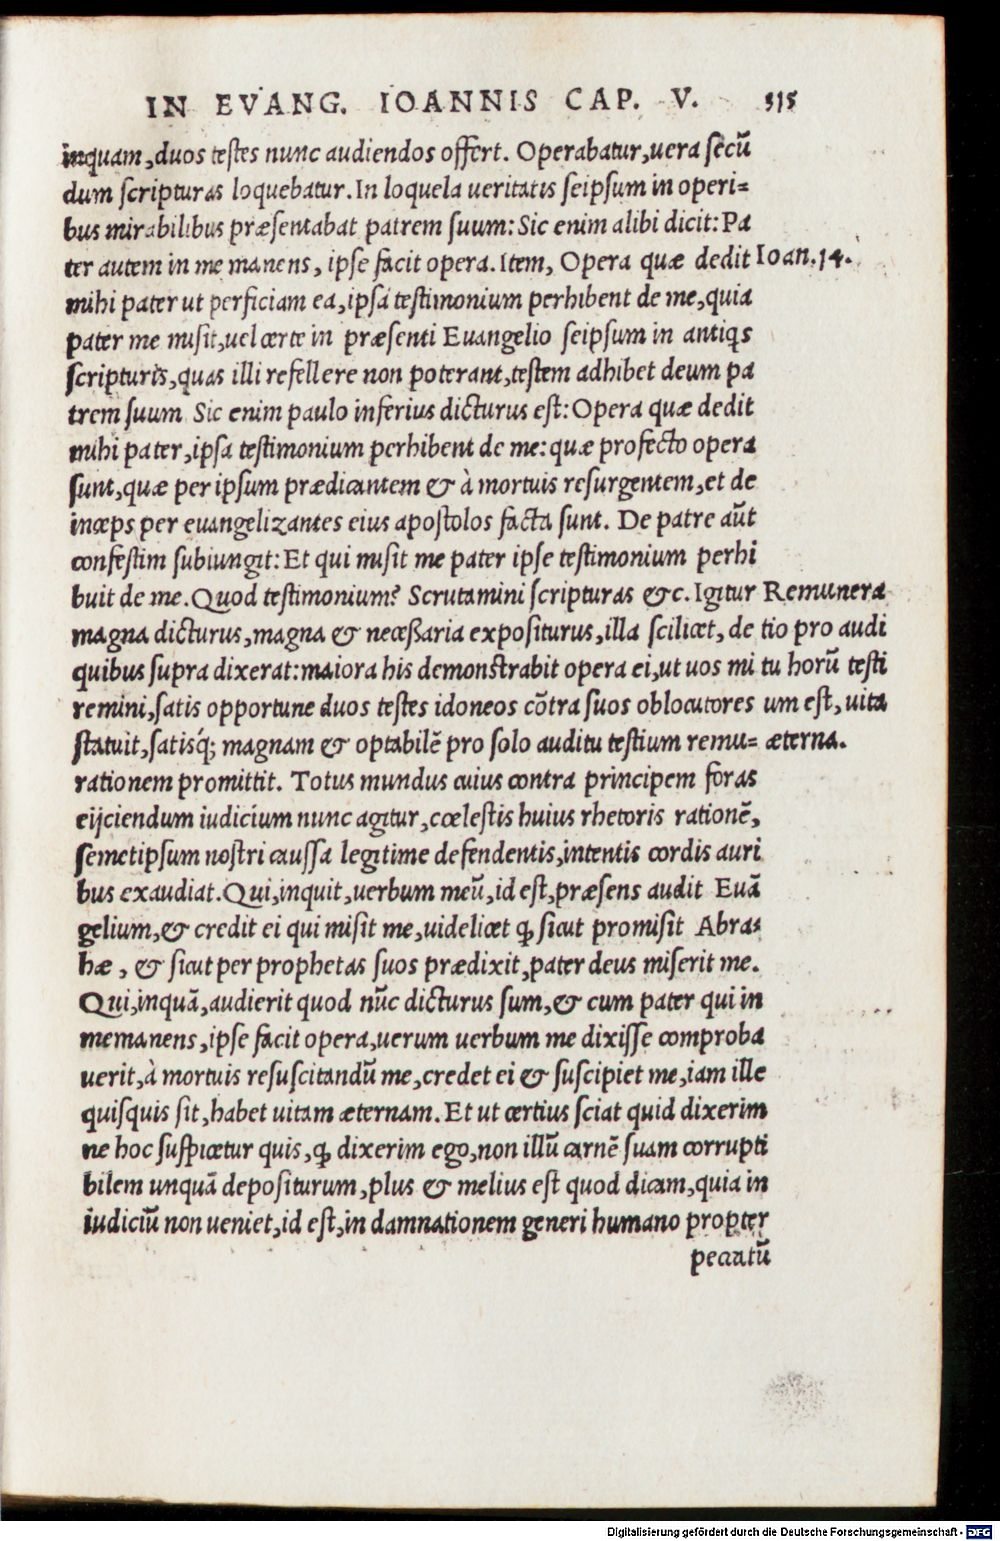 IN EVANG. IOANNIS CAP. V. 515
inquam, duos testes nunc audiendos offert. Operabatur, uera secū
dum scripturas loquebatur. In loquela ueritatis seipsum in operi=
bus mirabilibus præsentabat patrem suum: Sic enim alibi dicit: Pa
ter autem in me manens, ipse facit opera. Item, Opera quæ dedit
Ioan. 14.
mihi pater ut perficiam ea, ipsa testimonium perhibent de me, quia
pater me misit, uel certe in præsenti Euangelio seipsum in antiqs
scripturis, quas illi refellere non poterant, testem adhibet deum pa
trem suum Sic enim paulo inferius dicturus est: Opera quæ dedit
mihi pater, ipsa testimonium perhibent de me: quæ profecto opera
sunt, quæ per ipsum prædicantem & à mortuis resurgentem, et de
inceps per euangelizantes eius apostolos facta sunt. De patre aūt
confestim subiungit: Et qui misit me pater ipse testimonium perhi
buit de me. Quod testimonium? Scrutamini scripturas &c. Igitur
magna dicturus, magna & necessaria expositurus, illa scilicet, de
quibus supra dixerat: maiora his demonstrabit opera ei, ut uos mi
remini, satis opportune duos testes idoneos cōtra suos oblocutores
statuit, satisq; magnam & optabilē pro solo auditu testium remu=
Remunera
tio pro audi
tu horū testi
um est, uita
æterna.
rationem promittit. Totus mundus cuius contra principem foras
eijciendum iudicium nunc agitur, cœlestis huius rhetoris rationē,
semetipsum nostri caussa legitime defendentis, intentis cordis auri
bus exaudiat. Qui, inquit, uerbum meū, id est, præsens audit Euā
gelium, & credit ei qui misit me, uidelicet ꝙ sicut promisit Abra=
hæ, & sicut per prophetas suos prædixit, pater deus miserit me.
Qui, inquā, audierit quod nūc dicturus sum, & cum pater qui in
memanens, ipse facit opera, uerum uerbum me dixisse comproba
uerit, à mortuis resuscitandū me, credet ei & suscipiet me, iam ille
quisquis sit, habet uitam æternam. Et ut certius sciat quid dixerim
ne hoc suspicetur quis, ꝙ dixerim ego, non illū carnē suam corrupti
bilem unquā depositurum, plus & melius est quod dicam, quia in
iudiciū non ueniet, id est, in damnationem generi humano propter
peccatū
Digitalisierung gefördert durch die Deutsche Forschungsgemeinschaft - DFG